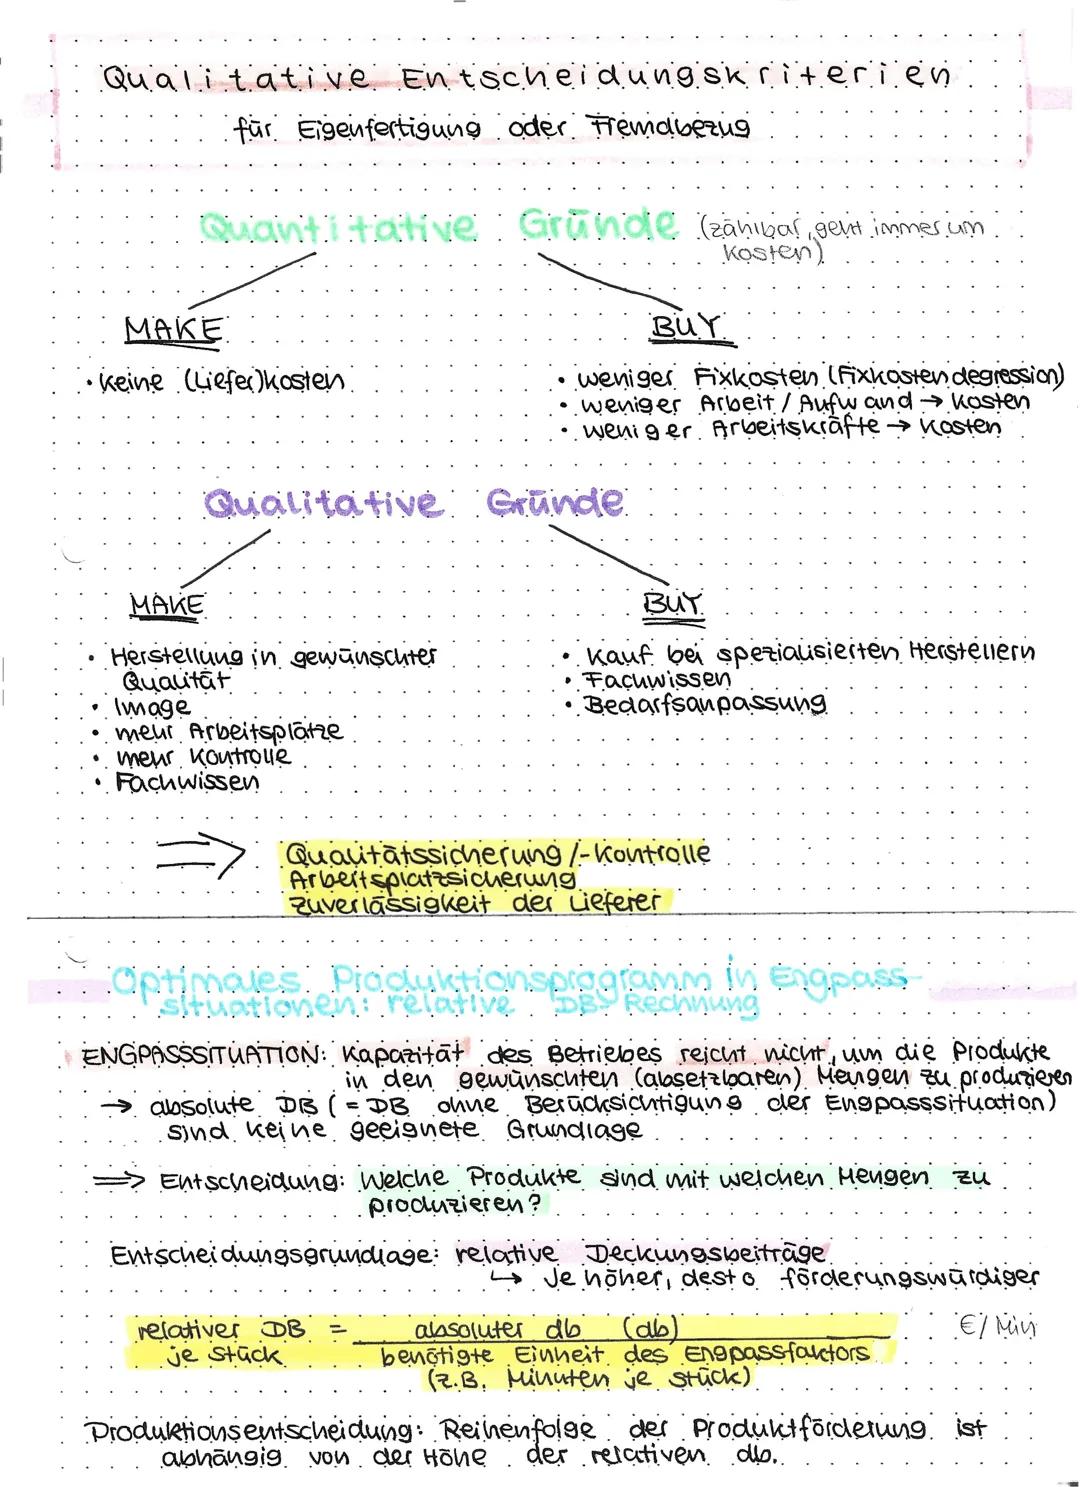 Qualitative Entscheidungskriterien
für Eigenfertigung oder Fremdbezug
Quantitative Gründe (zählbar, geht immer um
Kosten)
MAKE
• keine (Liefer)kosten
BUY
• weniger Fixkosten (Fixkostendegression)
• weniger Arbeit / Aufwand → Kosten
• weniger Arbeitskräfte → Kosten
Qualitative Gründe
MAKE
• Herstellung in gewünschter
Qualität
• Image
• mehr Arbeitsplätze
• mehr Kontrolle
• Fachwissen
BUY
• Kauf bei spezialisierten Herstellern
• Fachwissen
• Bedarfsanpassung
⇒ Qualitätssicherung /-Kontrolle
Arbeitsplatzsicherung
Zuverlässigkeit der Lieferer
Optimales Produktionsprogramm in Engpass-
situationen: relative DB Rechnung
ENGPASSSITUATION: Kapazität des Betriebes reicht nicht, um die Produkte
in den gewünschten (absetzbaren) Mengen zu produzieren
→ absolute DB (= DB ohne Berücksichtigung der Engpasssituation)
sind keine geeignete Grundlage
⇒ Entscheidung: Welche Produkte sind mit welchen Mengen zu
produzieren?
Entscheidungsgrundlage: relative Deckungsbeiträge
↳ Je höher, desto förderungswürdiger
relativer DB = absoluter db (db) €/Min
je Stück benötigte Einheit des Engpassfaktors
(z.B. Minuten je Stück)
Produktionsentscheidung: Reihenfolge der Produktförderung ist
abhängig von der Höhe der relativen db.